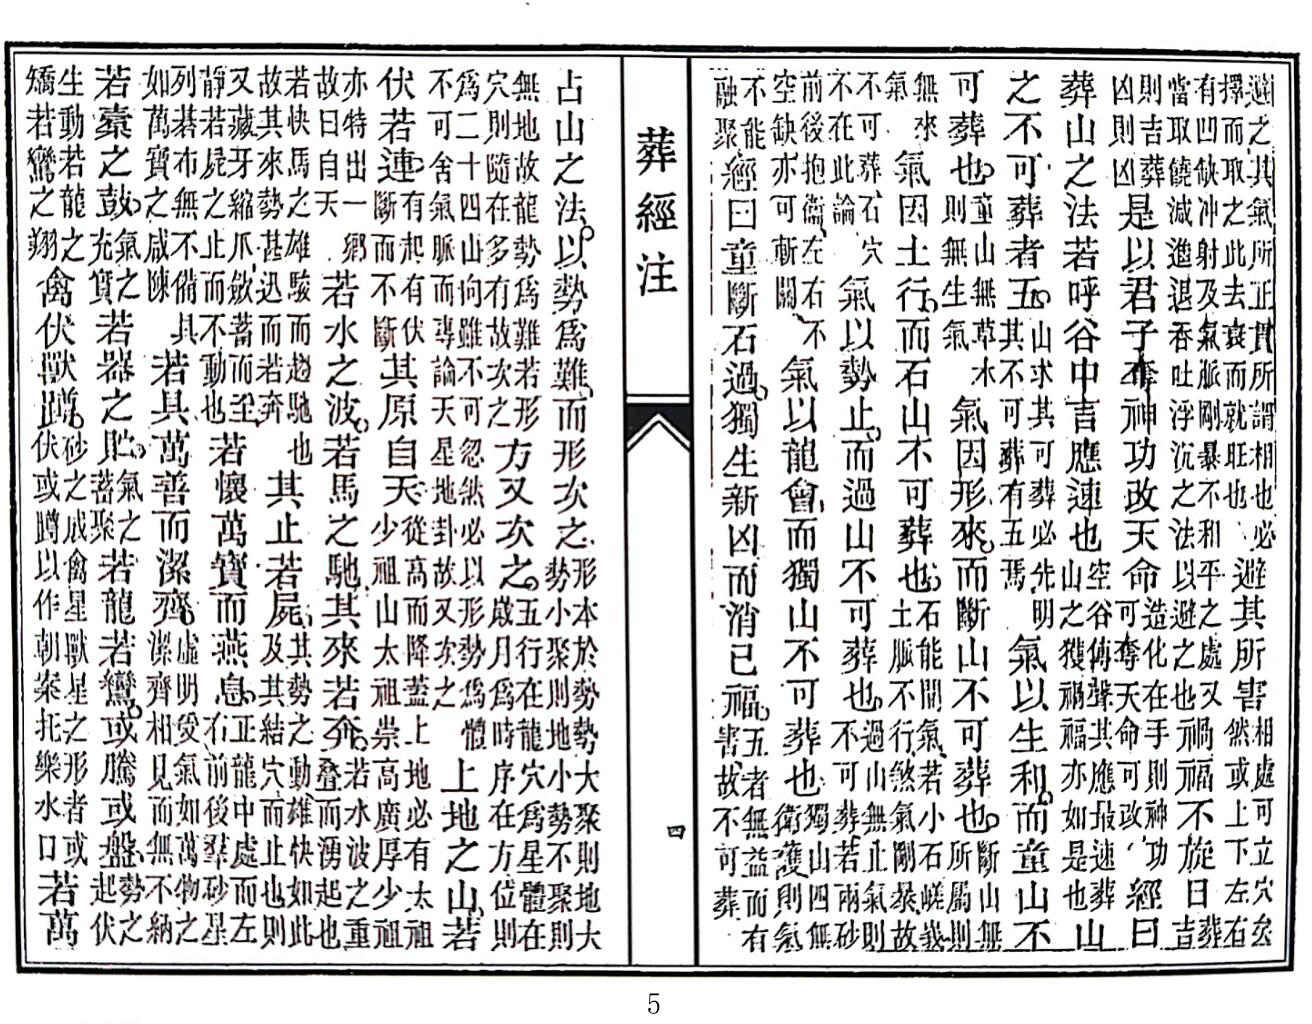 避之其氣所正貫所謂相也必擇而取之此去衰而就旺也避其所害相處可立穴矣然或上下左右
有凹缺冲射及氣脈剛暴不和平之處又當取饒減邀退吞吐浮沉之法以避之也禍福不旋日葬吉
則吉葬凶則凶是以君子奪神功改天命造化在手則神功可奪天命可改經曰
葬山之法若呼谷中言應速也空谷傳聲其應最速葬山之獲禍福亦如是也山
之不可葬者五山求其可葬必先明其不可葬有五焉氣以生和而童山不
可葬也童山無草木則無生氣氣因形來而斷山不可葬也斷山無所屬則
無來氣氣因土行而石山不可葬也石能開氣若小石嵯峩土脈不行煞氣剛暴故
不可葬石穴不在此論氣以勢止而過山不可葬也過山無止氣則不可葬若兩砂
前後抱衞左右不空缺亦可斬關氣以龍會而獨山不可葬也獨山四無衛護則氣
不能融聚經曰童斷石過獨生新凶而消已福五者無益而有害故不可葬
葬經注
四
占山之法以勢爲難而形次之形本於勢勢大聚則地大勢小聚則地小勢不聚則
無地故龍勢爲難若形穴則隨在多有故次之方又次之五行在龍穴爲星體在歲月爲時序在方位則
爲二十四山向雖不可忽然必以形勢爲體不可舍氣脈而專論天星地卦故又次之上地之山若
伏若連有起有伏斷而不斷其原自天從高而降蓋上地必有太祖少祖山太祖崇高廣厚少祖
亦特出一鄉故曰自天若水之波若馬之馳其來若奔若水波之重疊而湧起也
若快馬之雄駿而趨馳也故其來勢甚迅而若奔其止若屍其勢之動雄快如此及其結穴而止也則
又藏牙縮爪歛蓄而全靜若屍之止而不動也若懷萬寶而燕息正龍中處而左右前後羣砂星
列碁布無不備具如萬寶之咸陳若具萬善而潔齊虛明受氣如萬物之潔齊相見而無不納
若橐之鼓氣之充實若器之貯氣之蓄聚若龍若鸞或騰或盤勢之起伏
生動若龍之矯若鸞之翔禽伏獸蹲砂之成禽星獸星之形者或伏或蹲以作朝案托樂水口若萬
5